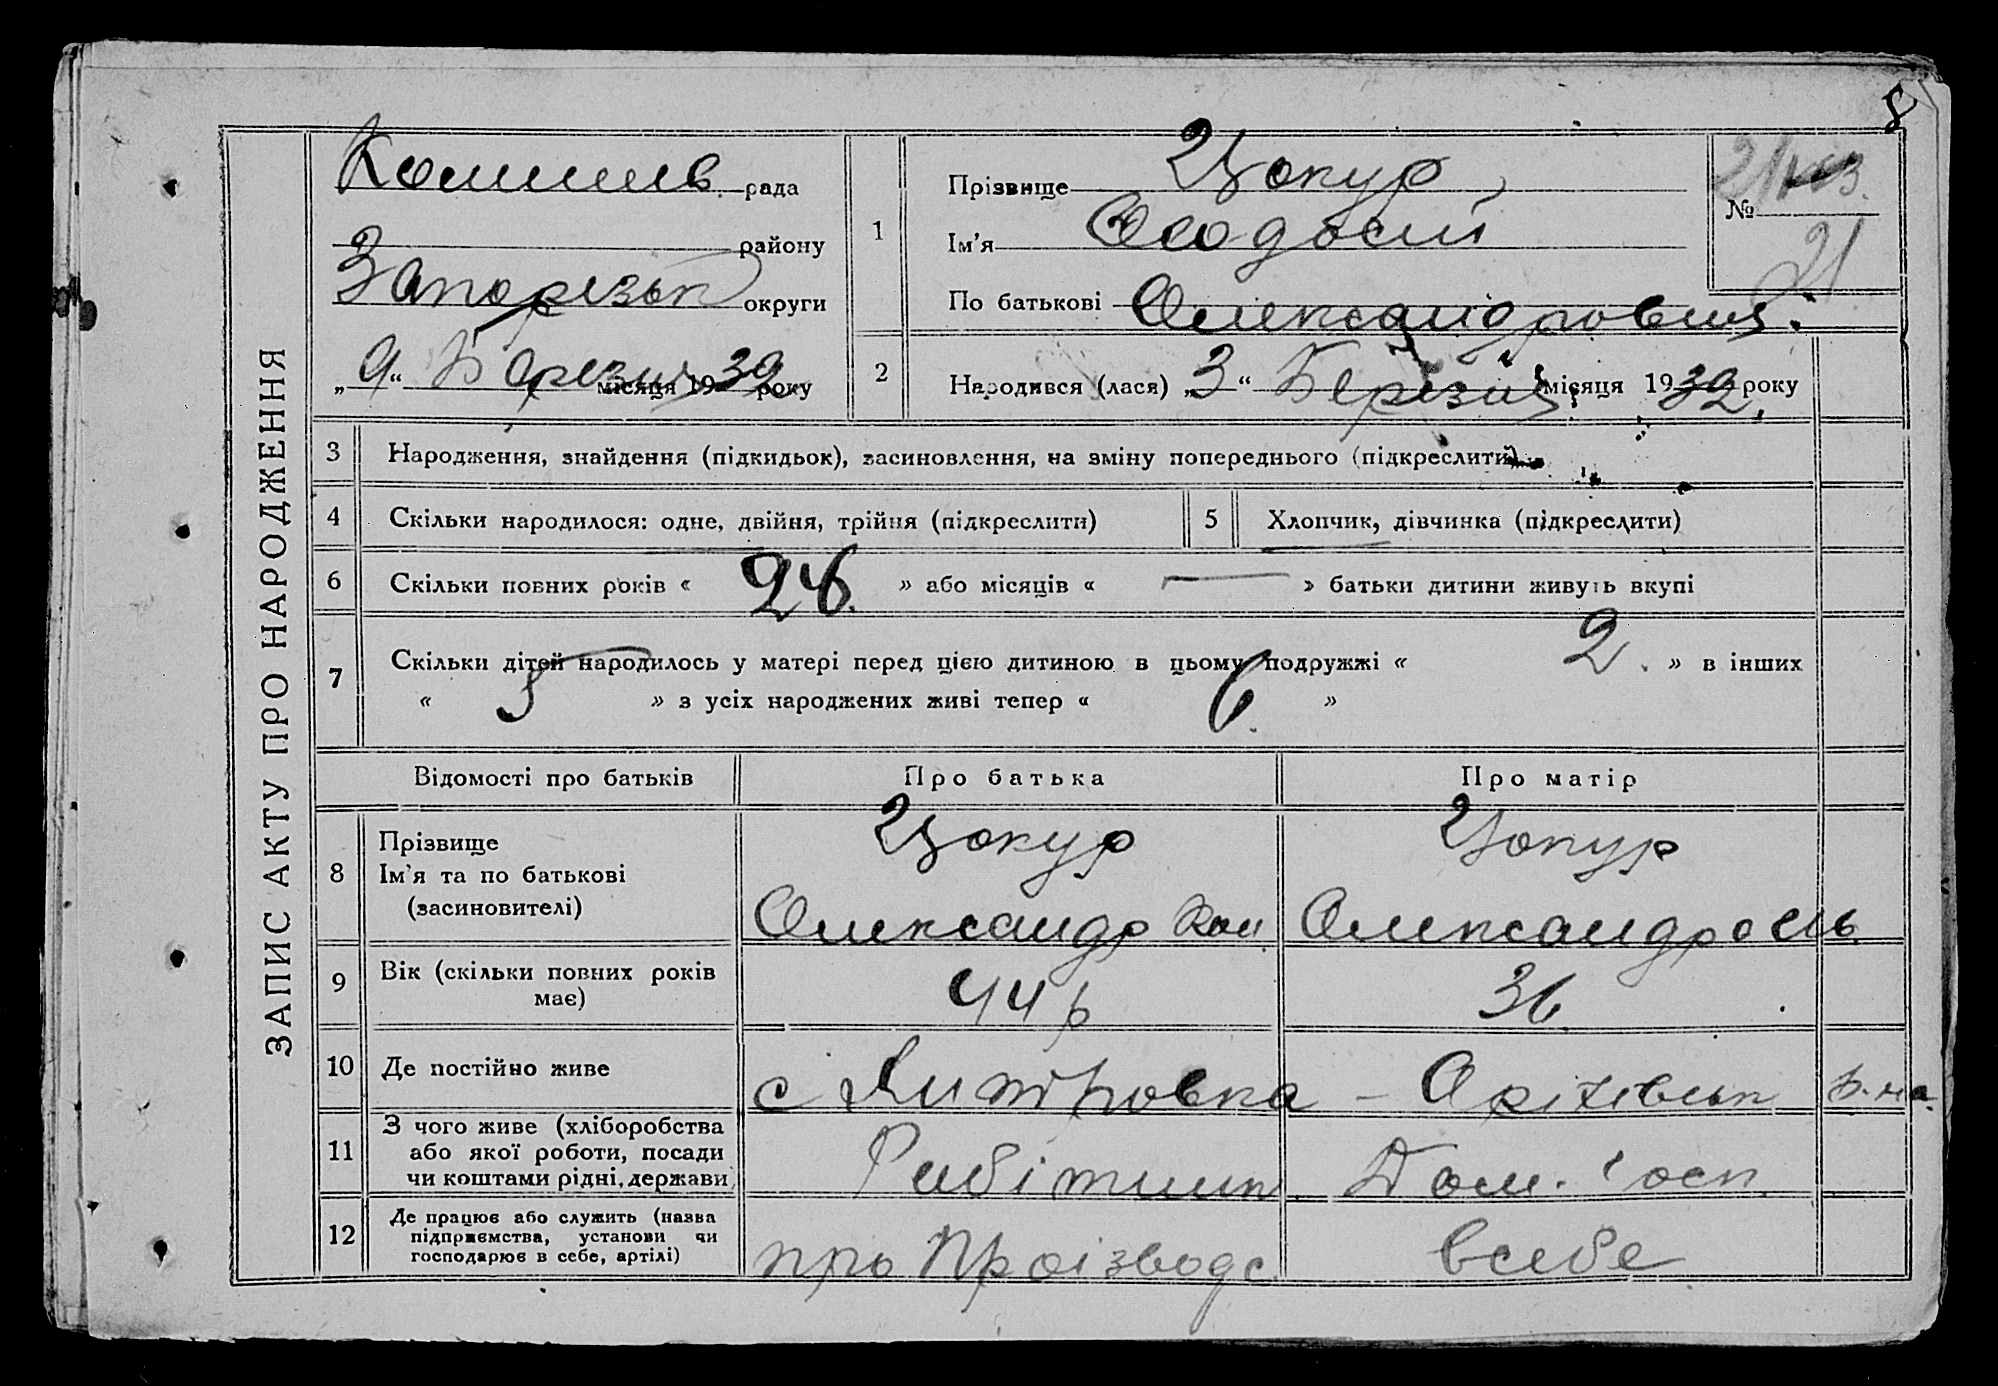 8
ЗАПИС АКТУ ПРО НАРОДЖЕННЯ
Комишев рада
району
Запорізьк округи
„9“ Березня місяця 1932 року
1
Прізвище Цокур
Ім'я Феодосий
По батькові Олександрович.
№
21
2
Народився (лася) „3“ Березня місяця 1932 року
3 Народження, знайдення (підкидьок), засиновлення, на зміну попереднього (підкреслити)
4 Скільки народилося: одне, двійня, трійня (підкреслити)
5 Хлопчик, дівчинка (підкреслити)
6 Скільки повних років « » або місяців « — » батьки дитини живуть вкупі
7 Скільки дітей народилось у матері перед цією дитиною в цьому подружжі « 2. » в інших
« 5 » з усіх народжених живі тепер « 6. »
Відомості про батьків Про батька Про матір
8 Прізвище
Ім'я та по батькові
(засиновителі)
Цокур Цокур
Олександр Олександра
9 Вік (скільки повних років
має)
44 р 36.
10 Де постійно живе с Дмитровка – Оріхівськ р-на.
11 З чого живе (хліборобства
або якої роботи, посади
чи коштами рідні, держави)
Рабітник Дом. госп.
12 Де працює або служить (назва
підприємства, установи чи
господарює в себе, артілі)
про Проізводс вcебе